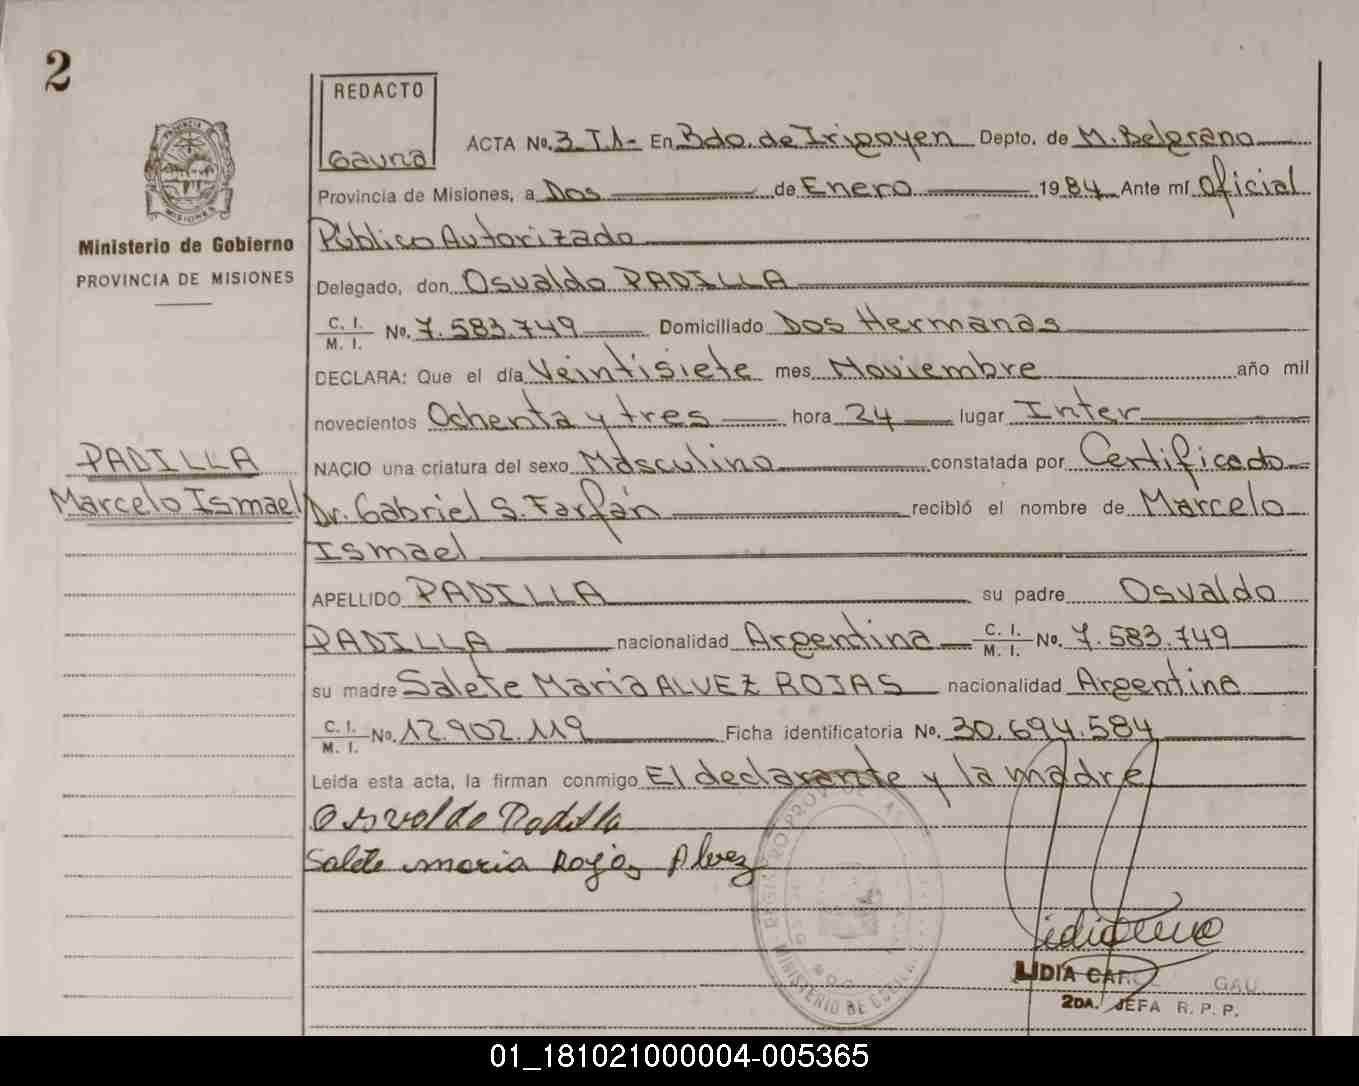 2
REDACTO
Gauna
PROVINCIA DE
MISIONES
Ministerio de Gobierno
PROVINCIA DE MISIONES
ACTA No. 3 T I.- En Bdo. de Irigoyen Depto. de M. Belgrano
Provincia de Misiones, a Dos de Enero 1984 Ante mí Oficial
Público Autorizado
Delegado, don Osvaldo PADILLA
C. I. / M. I. No. 7.583.749 Domiciliado Dos Hermanas
DECLARA: Que el día Veintisiete mes Noviembre año mil
novecientos Ochenta y tres hora 24 lugar Inter
PADILLA
NACIO una criatura del sexo Masculino constatada por Certificado
Marcelo Ismael
Dr. Gabriel S. Farfán recibió el nombre de Marcelo
Ismael
APELLIDO PADILLA su padre Osvaldo
PADILLA nacionalidad Argentina C. I. / M. I. No. 7.583.749
su madre Salete Maria ALVEZ ROJAS nacionalidad Argentina
C. I. / M. I. No. 12.902.119 Ficha identificatoria No. 30.694.584
Leída esta acta, la firman conmigo El declarante y la madre
Osvaldo Padilla
Salete maria Rojas Alvez
MINISTERIO DE
LIDIA GAU
2DA. JEFA R. P. P.
01_181021000004-005365